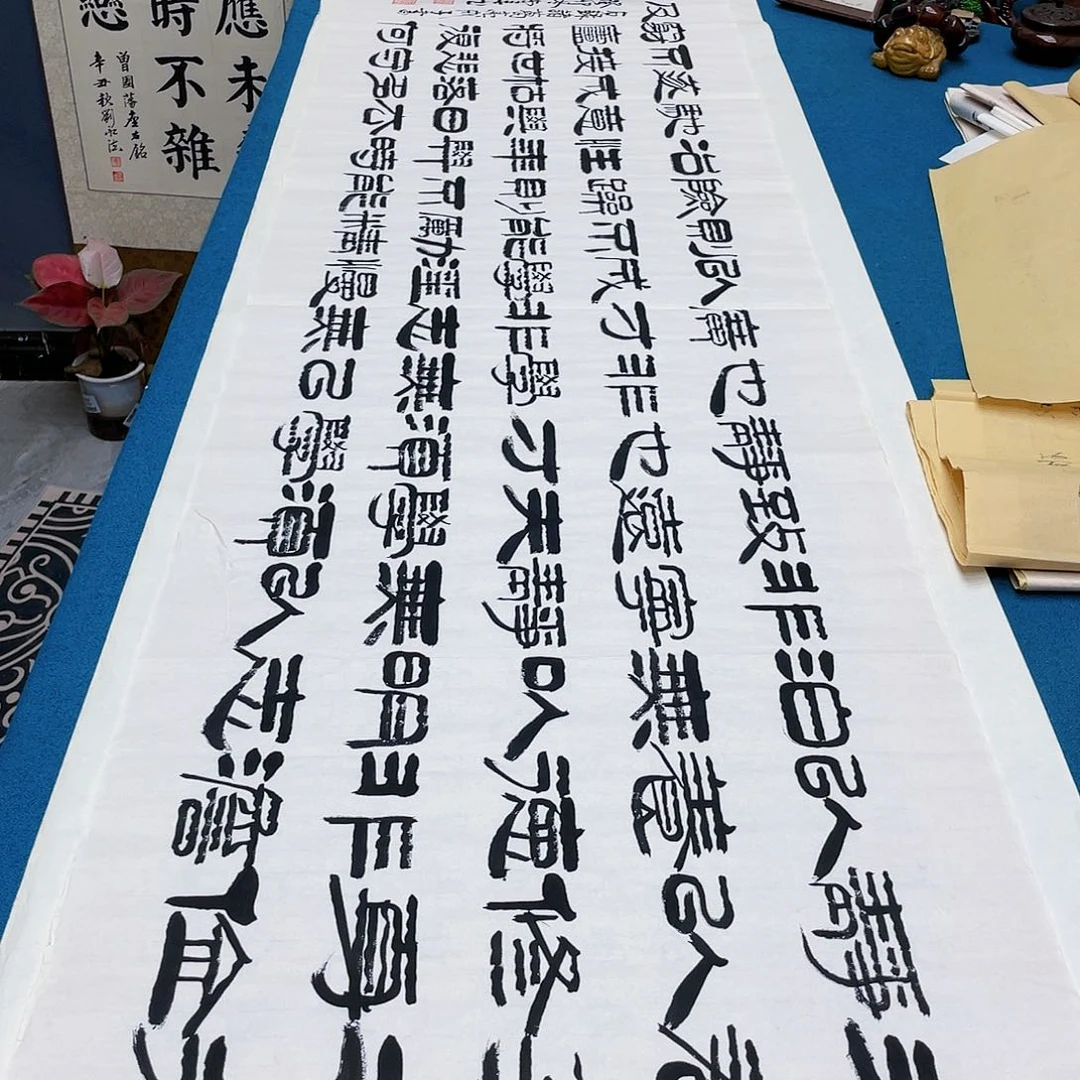 静以修身儉
以養德非澹
泊無以明志
非寧静無以
致遠夫學須
静也才須學
也非學無以
廣才非志無
以成學淫慢
則不能勵精
險躁則不能
治性年與時
馳意與日去
遂成枯落多
不接世悲守
窮廬將復何
及
應未
時不雜
戀
曾國藩座右銘
辛丑秋劉